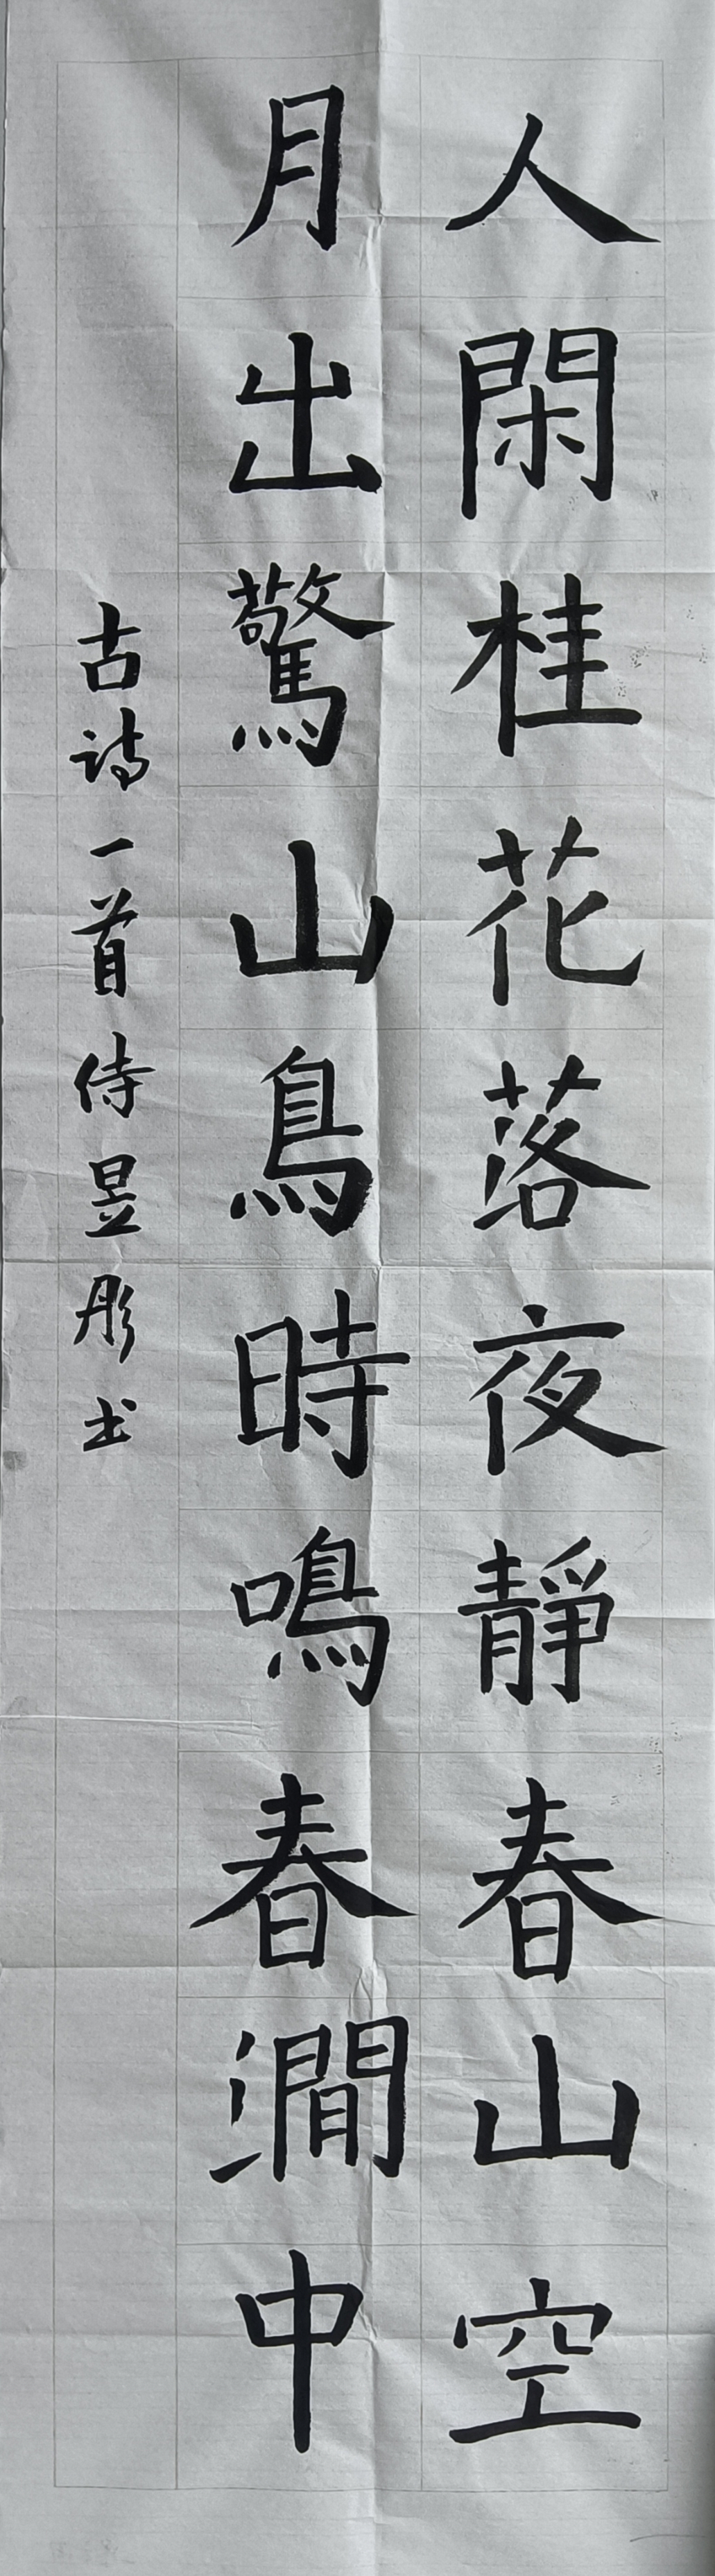 人閑桂花落夜靜春山空
月出驚山鳥時鳴春澗中
古诗一首侍昱彤书